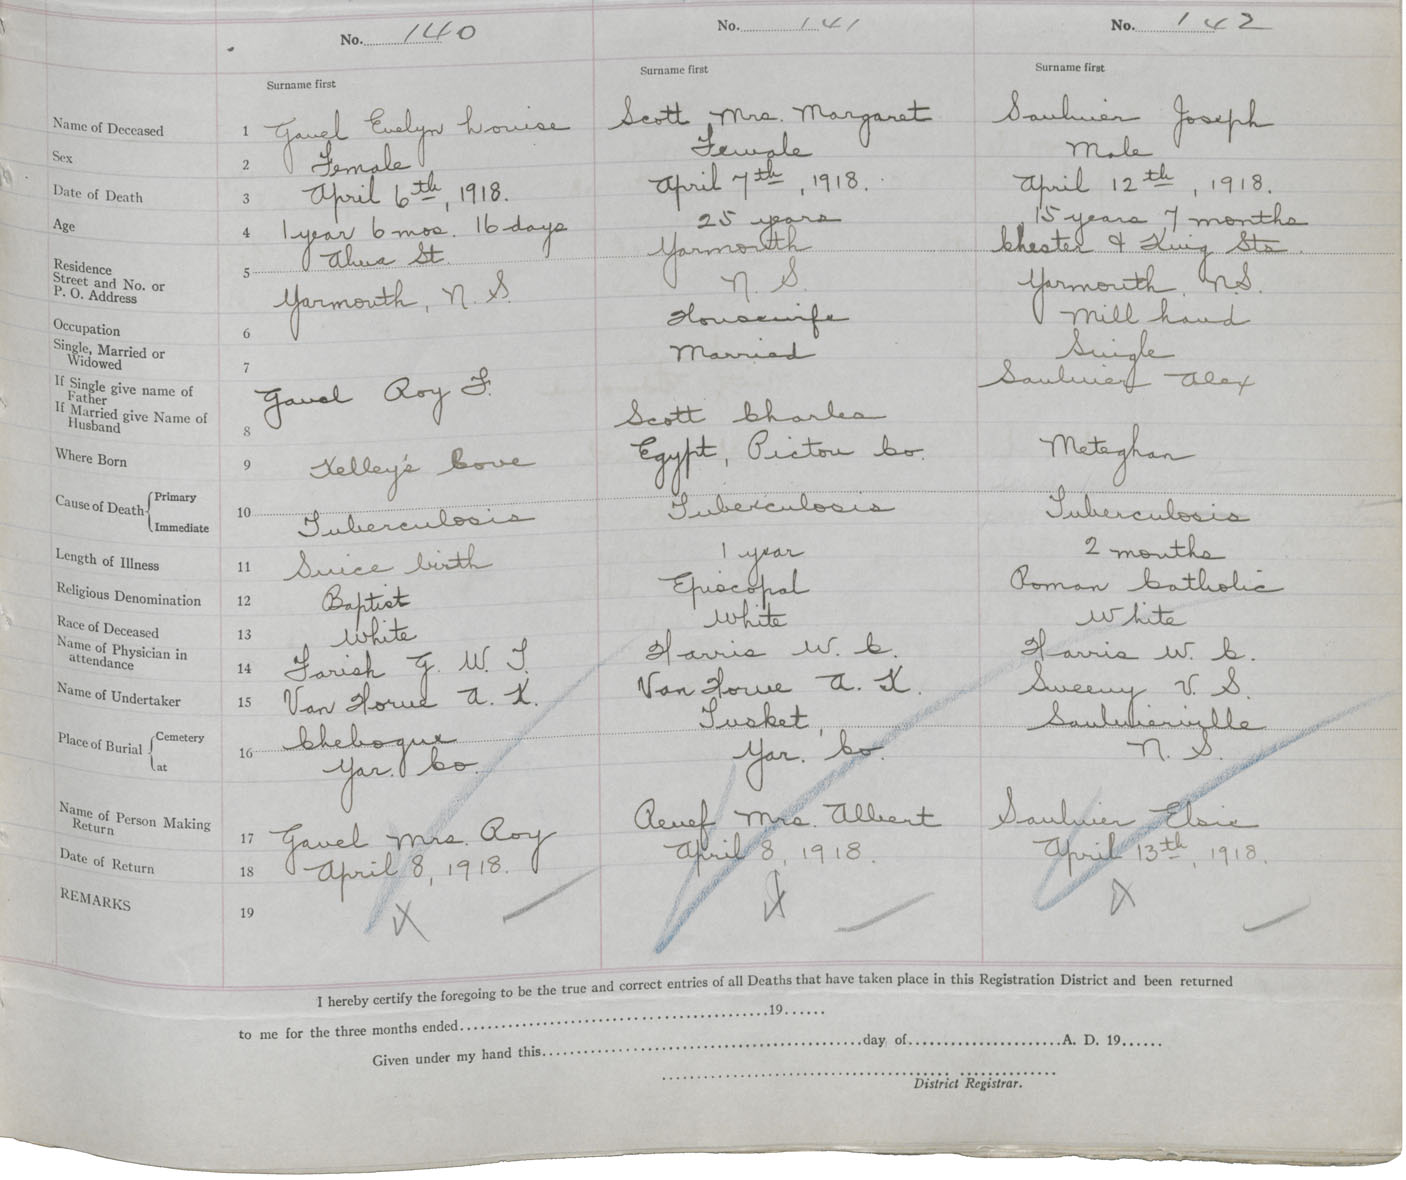 No. 140 No. 141 No. 142
Surname first Surname first Surname first
Name of Deceased 1 Gavel Evelyn Louise Scott Mrs. Margaret Saulnier Joseph
Sex 2 Female Female Male
Date of Death 3 April 6th, 1918. April 7th, 1918. April 12th, 1918.
Age 4 1 year 6 mos. 16 days 25 years 15 years 7 months
Residence Alma St. Yarmouth Chester & King Sts.
Street and No. or 5
P. O. Address Yarmouth, N. S. N. S. Yarmouth, N.S.
Occupation 6 Housewife Mill hand
Single, Married or
Widowed 7 Married Single
If Single give name of
Father Gavel Roy F. Saulnier Alex
If Married give Name of
Husband 8 Scott Charles
Where Born 9 Kelley's Cove Egypt, Pictou Co. Meteghan
Cause of Death Primary
Immediate 10 Tuberculosis Tuberculosis Tuberculosis
Length of Illness 11 Since birth 1 year 2 months
Religious Denomination 12 Baptist Episcopal Roman Catholic
Race of Deceased 13 White White White
Name of Physician in
attendance 14 Farish G. W. T. Harris W. C. Harris W. C.
Name of Undertaker 15 Van Horne A. K. Van Horne A. K. Sweeny V. S.
Place of Burial Cemetery 16 Chebogue Tusket, Saulnierville
at Yar. Co. Yar. Co. N. S.
Name of Person Making
Return 17 Gavel Mrs. Roy Mrs. Albert Saulnier Elsie
Date of Return 18 April 8, 1918. April 8, 1918. April 13th, 1918.
REMARKS 19
I hereby certify the foregoing to be the true and correct entries of all Deaths that have taken place in this Registration District and been returned
to me for the three months ended 19
Given under my hand this day of A. D. 19
District Registrar.